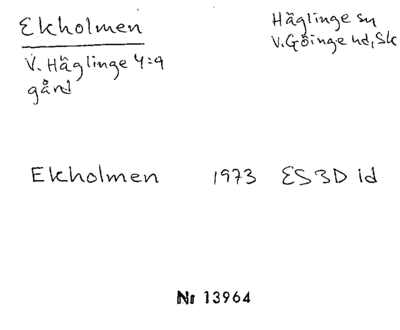 Ekholmen
V. Häglinge 4:9
gård
Häglinge sn
V. Göinge hd, Sk
Ekholmen 1973 ES3D id
Nr 13964